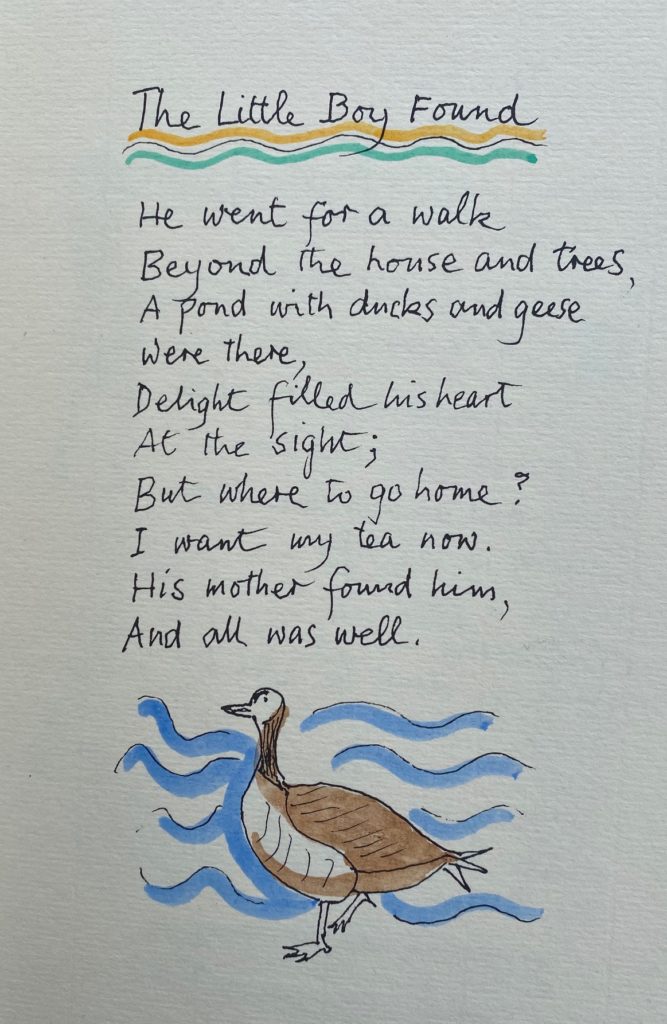 The Little Boy Found
He went for a walk
Beyond the house and trees,
A pond with ducks and geese
Were there,
Delight filled his heart
At the sight;
But where to go home?
I want my tea now.
His mother found him,
And all was well.